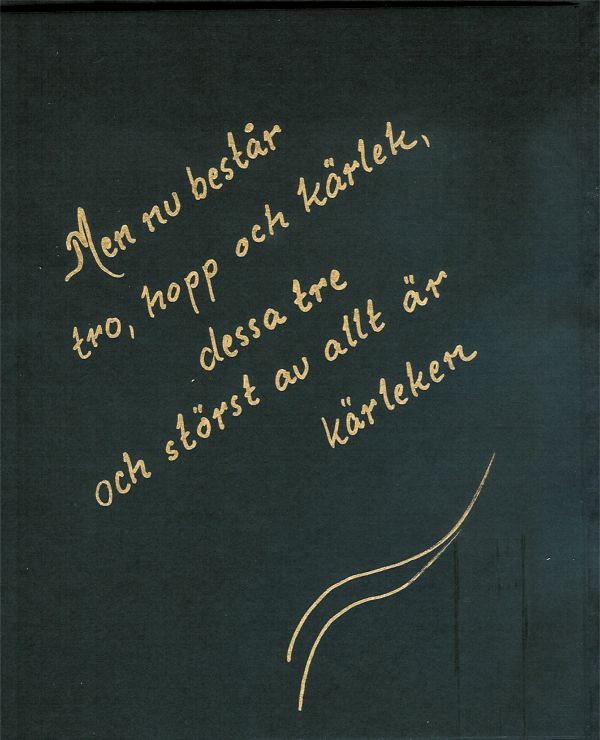 Men nu består
tro, hopp och kärlek,
dessa tre
och störst av allt är
kärleken